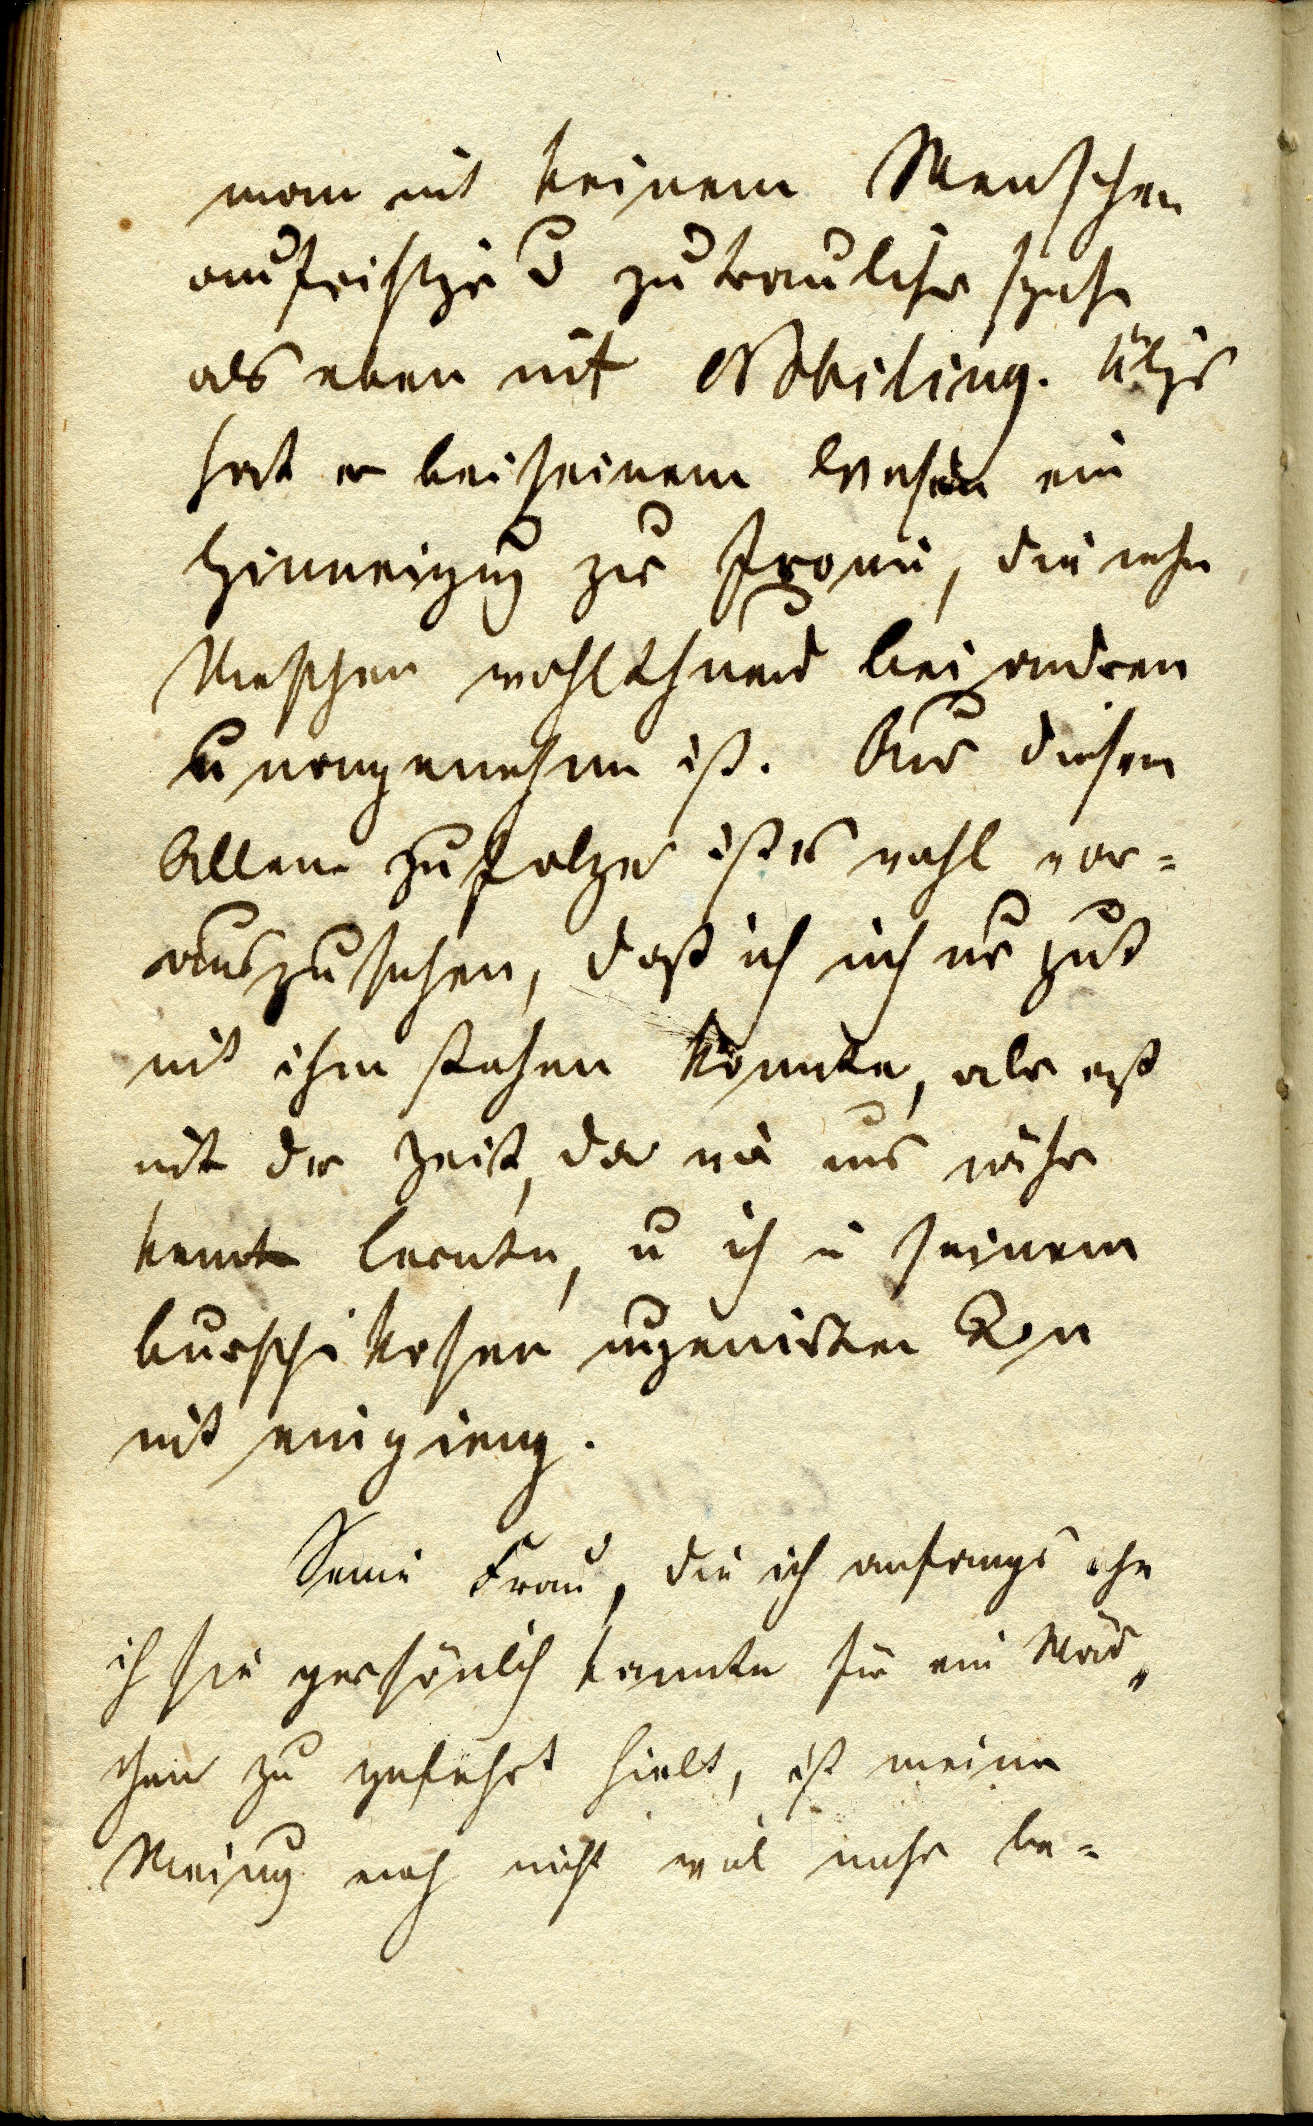 man mit keinem Menschen
aufrichtger u zutraulicher spricht
als eben mit Nobiling. Übrigs
hat er bei seinem Wesen ein
Hinneigung zur Ironie, die mehr
Menschen wohlthuend bei andren
unangenehm ist. Aus diesem
Allem zufolge ist es wohl vor-
auszusehen, daß ich mich nur gut
mit ihm stehen konnte, als erst
mit der Zeit, da wir uns näher
kennen lernten, u ich in seinem
burschikosen Ton
mit einging.
Seine Frau, die ich anfangs ehe
ich sie persönlich kannte für ein Mäd„
chen zu gelehrt hielt, ist meiner
Meinung nach nicht viel mehr be-